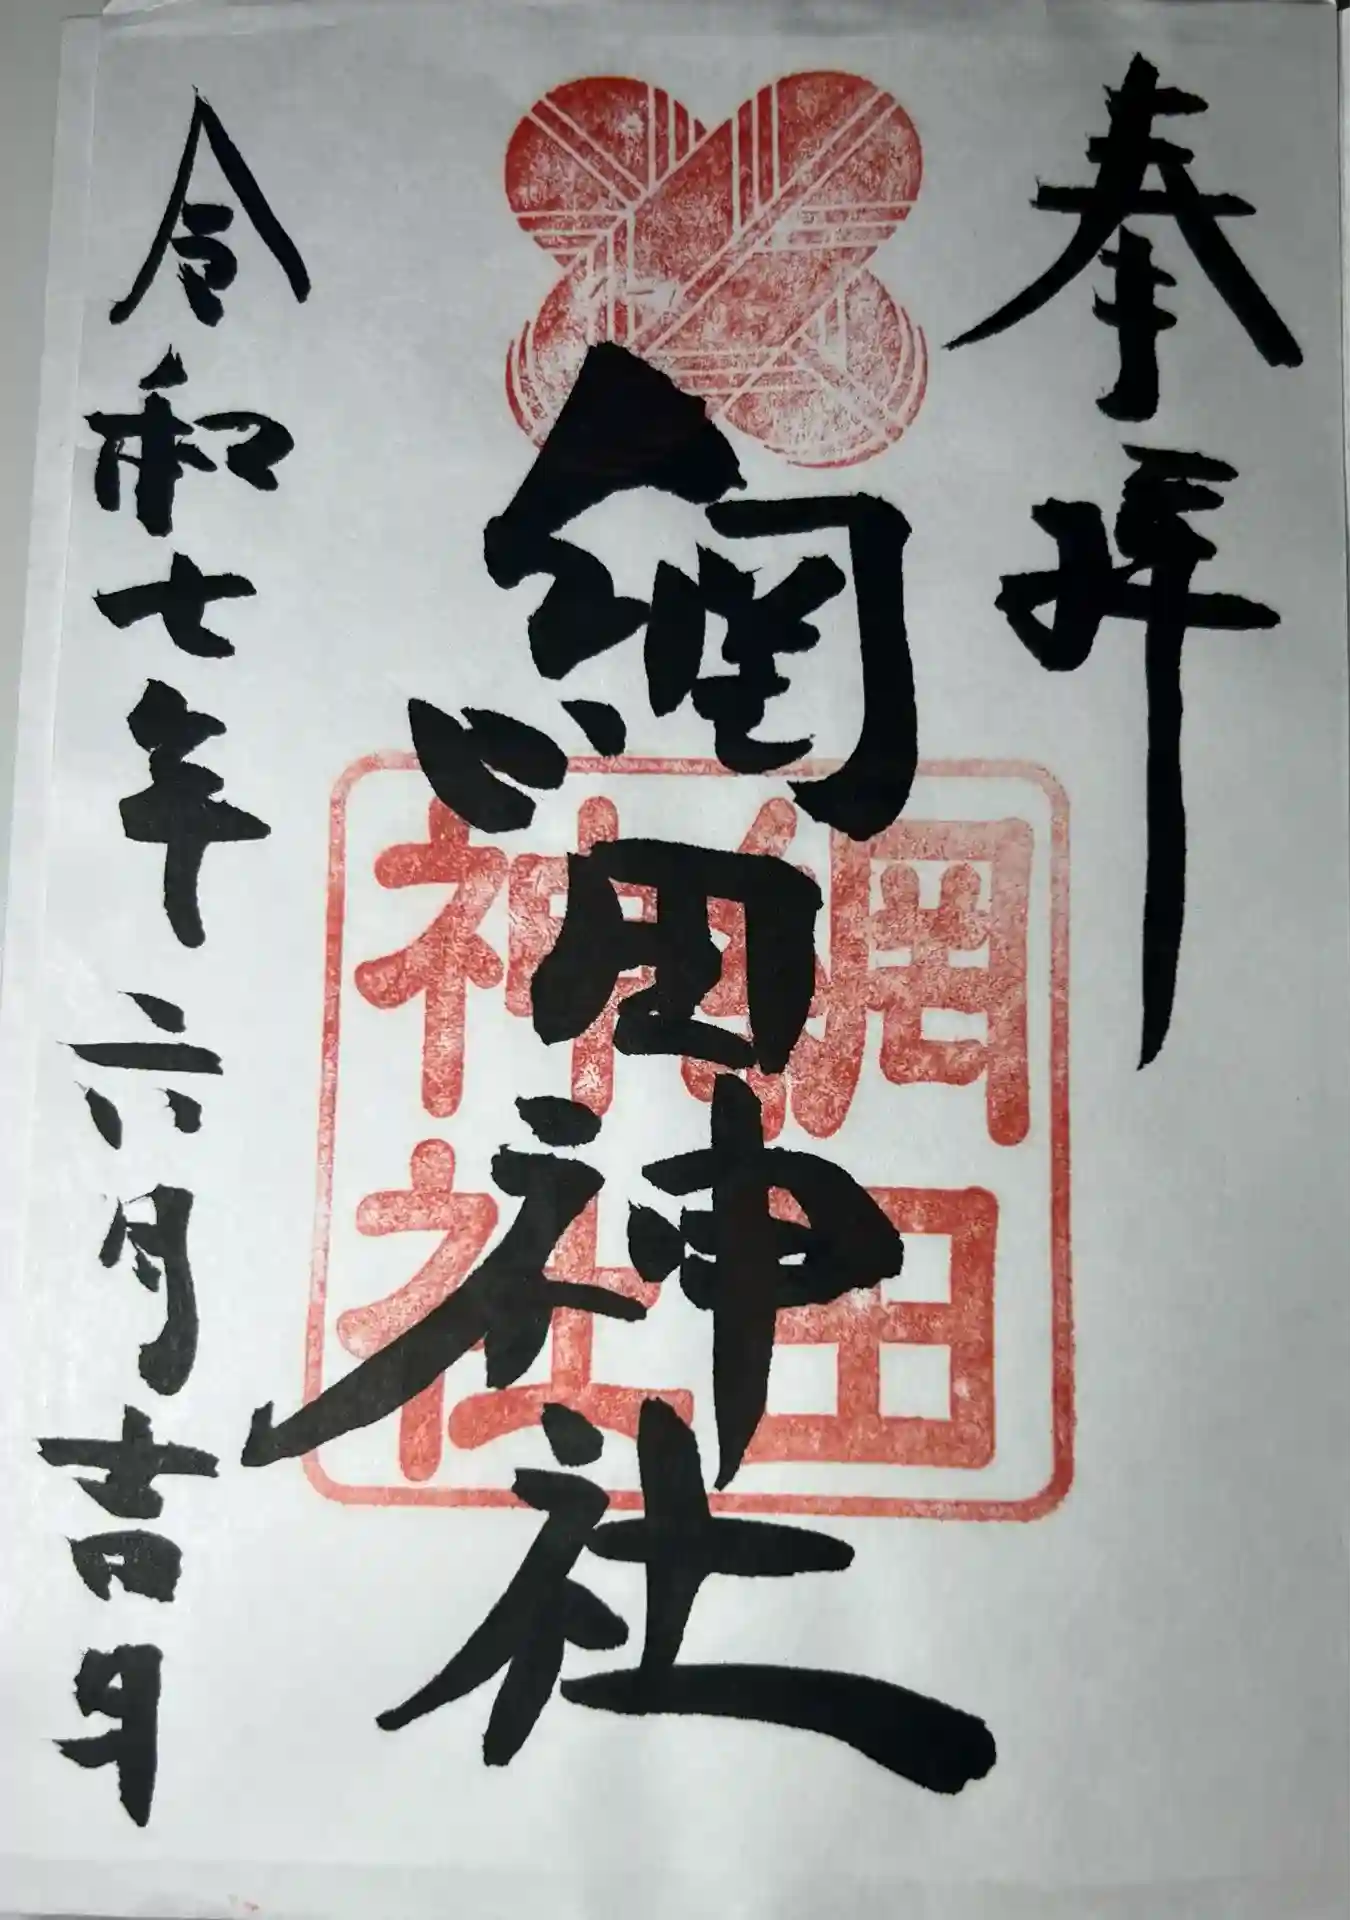 奉拝
網田神社
令和七年六月吉日
網田
神社